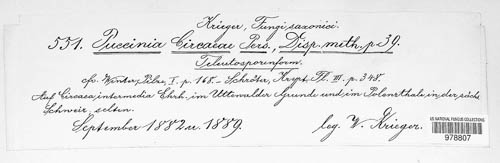 Krieger, Fungi saxonici.
551. Puccinia Circaeae Pers., Disp. meth. p. 39.
Teleutosporenform.
cfr. Winter, Pilze, I. p. 168. – Schröter, Krypt. Fl. III. p. 348.
Auf Circaea intermedia Ehrh. im Uttewalder Grunde und im Polenzthale in der sächs.
Schweiz, selten.
September 1882 u. 1889. leg. W. Krieger.
US NATIONAL FUNGUS COLLECTIONS
978807